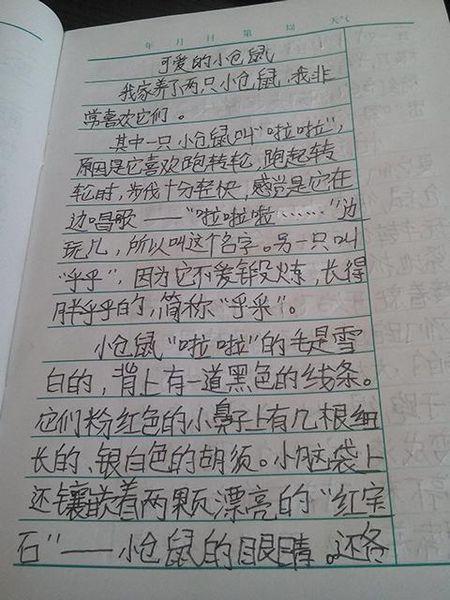 年 月 日 第 周 天气
可爱的小仓鼠
我家养了两只小仓鼠，我非
常喜欢它们。
其中一只小仓鼠叫“啦啦”，
原因是它喜欢跑转轮，跑起转
轮时，步伐十分轻快，感觉是它在
边唱歌——“啦啦啦……”边
玩儿，所以叫这个名字。另一只叫
“乎乎”，因为它不爱锻炼，长得
胖乎乎的，简称“乎乎”。
小仓鼠“啦啦”的毛是雪
白的，背上有一道黑色的线条。
它们粉红色的小鼻子上有几根细
长的、银白色的胡须。小脑袋上
还镶嵌着两颗漂亮的“红宝
石”——小仓鼠的眼睛。还各